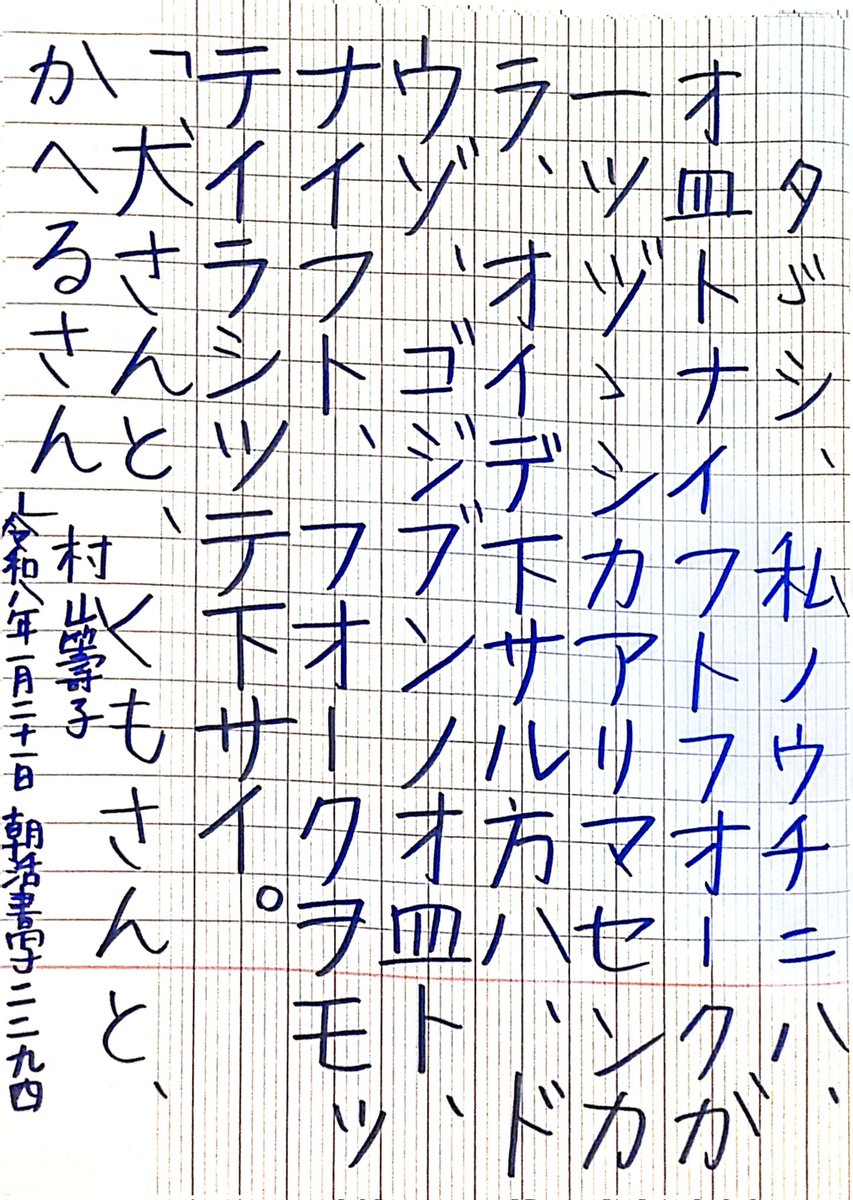 タヾシ、私ノウチニハ、
オ皿トナイフトフオークガ
一ツヅヽシカアリマセンカ
ラ、オイデ下サル方ハ、ド
ウゾ、ゴジブンノオ皿ト、
ナイフト、フオークヲモッ
テイラシツテ下サイ。
「犬さんと、くもさんと、
かへるさん」
村山籌子
令和八年一月二十一日 朝活書写二二九四